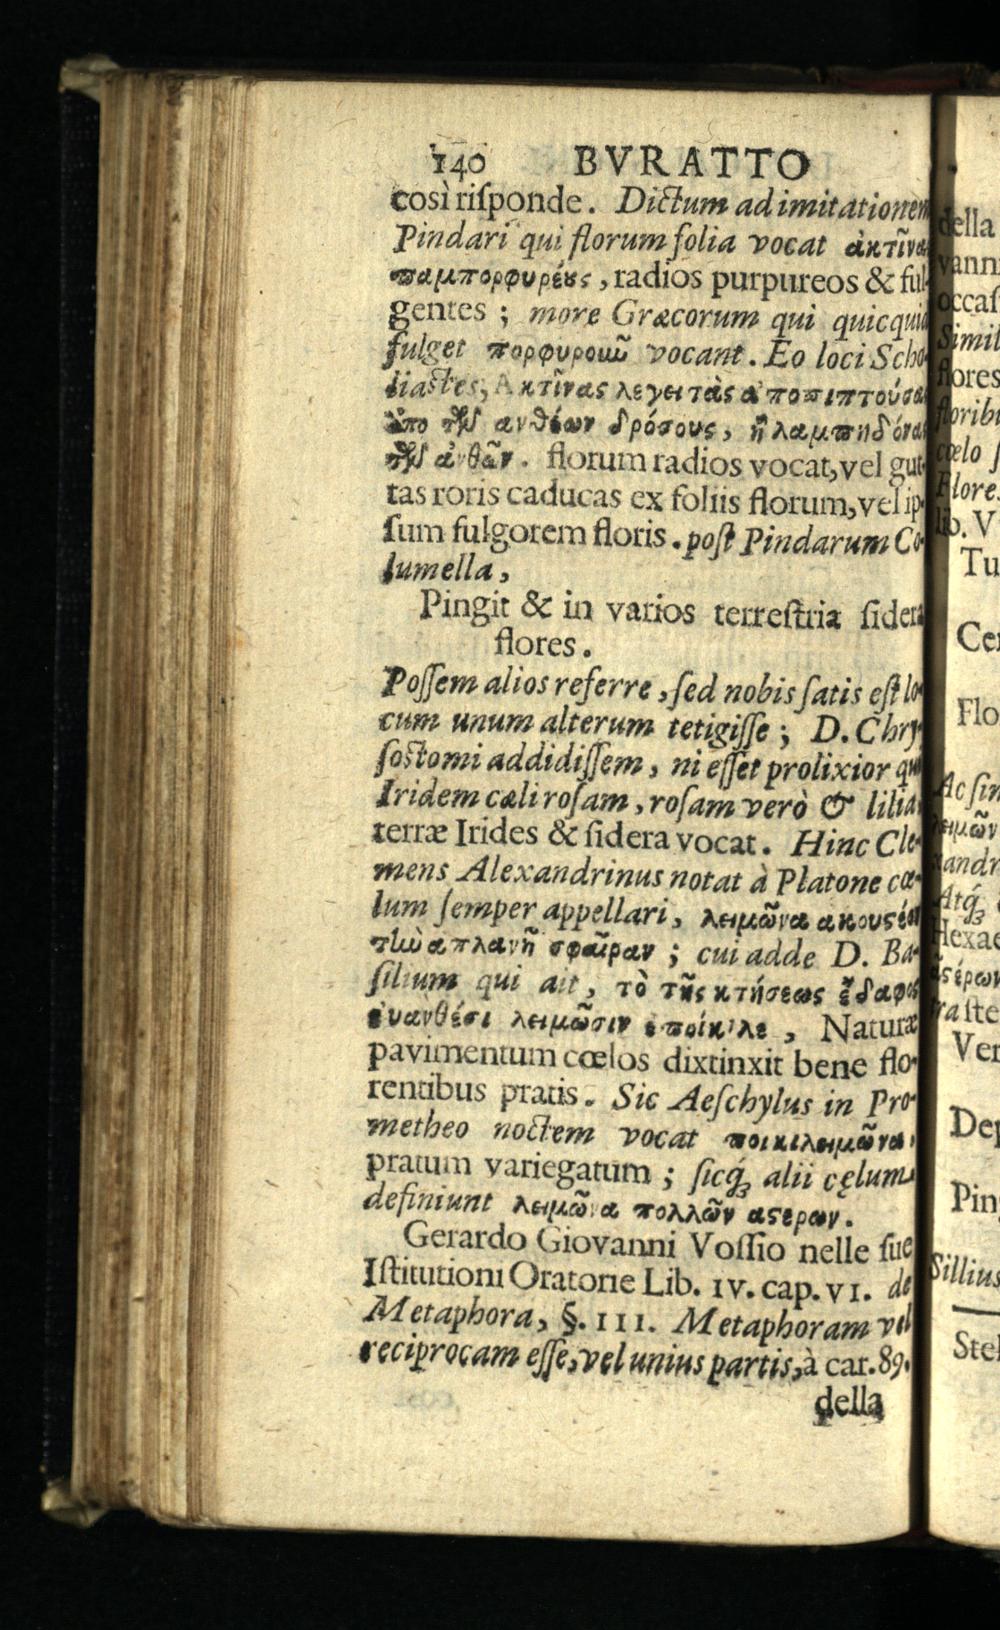 140 BVRATTO
così riſponde. Dictum ad imitationem
Pindari qui florum folia vocat ἀκτῖνας
παμπορφυρέυς, radios purpureos & ful-
gentes ; more Græcorum qui quicquid
fulget vocant. Eo loci Scho-
liaſtes, Ακτῖνας λεγει τὰς ἀποπιπτούσας
ἀπο τῶν ανθέων δρόσους, ἢ λαμπηδόνας
τῶν ἀνθῶν. florum radios vocat, vel gut-
tas roris caducas ex foliis florum, vel ip-
ſum fulgorem floris. poſt Pindarum Co-
lumella,
Pingit & in varios terreſtria ſidera
flores.
Poſſem alios referre, ſed nobis ſatis eſt lo-
cum unum alterum tetigiſſe ; D. Chry-
ſoſtomi addidiſſem, ni eſſet prolixior qui
Iridem cæli roſam, roſam verò & lilia
terræ Irides & ſidera vocat. Hinc Cle-
mens Alexandrinus notat à Platone cœ-
lum ſemper appellari, λειμῶνα
τὼ απλανῆ σφαῖραν ; cui adde D. Ba-
ſilium qui ait, τὸ τῆς κτήσεως ἔδαφος
ἐυανθέσι λειμῶσιν ἐποίκιλε, Naturæ
pavimentum cœlos dixtinxit bene flo-
rentibus pratis. Sic Aeſchylus in Pro-
metheo noctem vocat ποικιλειμῶνα,
pratum variegatum ; ſicq́ꝫ alii cęlum
definiunt λειμῶνα πολλῶν αϛερων.
Gerardo Giovanni Voſſio nelle ſue
Iſtitutioni Oratorie Lib. IV. cap. VI. de
Metaphora, §. III. Metaphoram vel
reciprocam eſſe, vel unius partis, à car. 89.
della
della
vanni
occaſ
Simil
flores
floribu
cœlo ſ
Flores
lib. V
Tu
Cer
Flo
Ac ſim
λειμῶν
xandr
Atq́ꝫ
Hexae
ἀϛέρων
tra ſte
Ver
Dep
Ping
Sillius
Stel